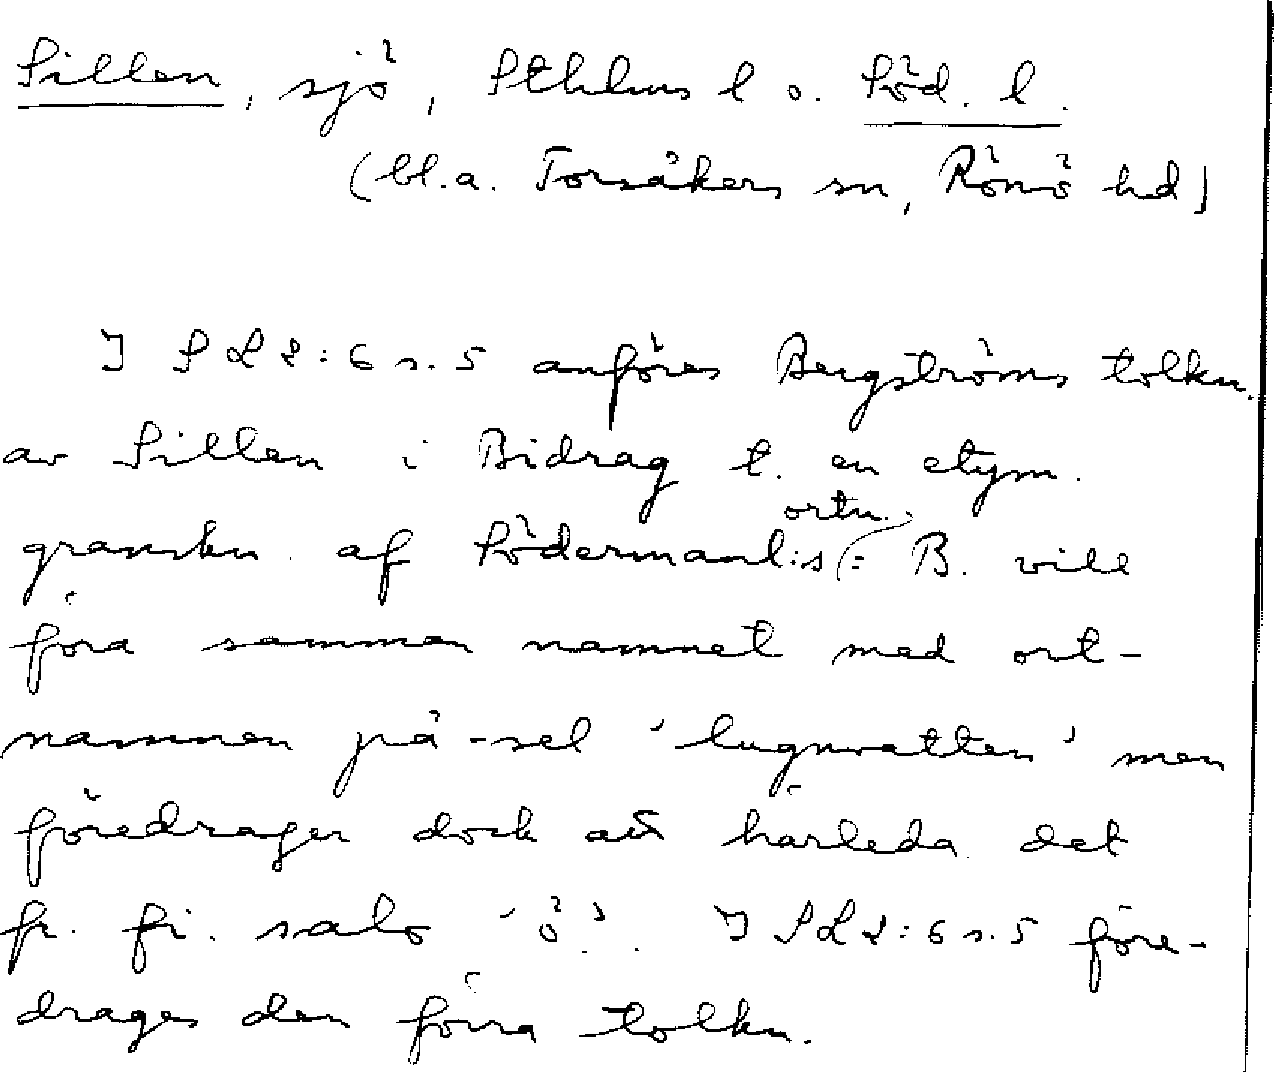 Sillen, sjö, Sthlms l o. Söd. l.
(bl.a. Torsåkers sn, Rönö hd)
I SL 2:6 s. 5 anföres Bergströms tolkn.
av Sillen i Bidrag t. en etym.
ortn.
granskn. af Södermanl:s (= B. vill
föra samman namnet med ort-
namnen på -sel 'lugnvatten' men
föredrager dock att härleda det
fr. fi. salo 'ö'. I SL 2:6 s. 5 före-
drages den förra tolkn.